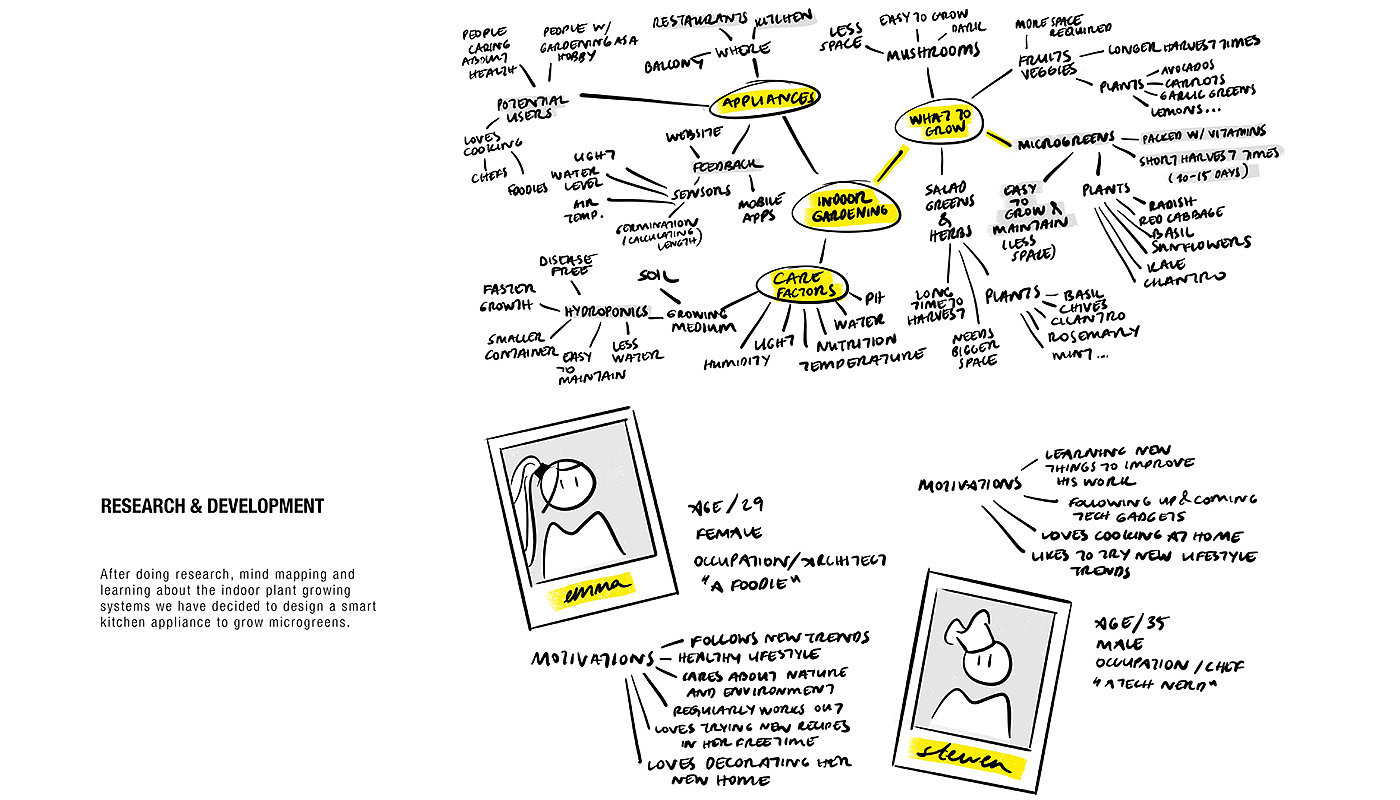 RESEARCH & DEVELOPMENT
After doing research, mind mapping and
learning about the indoor plant growing
systems we have decided to design a smart
kitchen appliance to grow microgreens.
PEOPLE
CARING
ABOUT
HEALTH
PEOPLE W/
GARDENING AS A
HOBBY
POTENTIAL
USERS
LOVES
COOKING
CHEFS
FOODIES
RESTAURANTS
KITCHEN
BALCONY
WHERE
APPLIANCES
WEBSITE
FEEDBACK
MOBILE
APPS
SENSORS
LIGHT
WATER
LEVEL
AIR
TEMP.
GERMINATION
(CALCULATING
LENGTH)
INDOOR
GARDENING
WHAT TO
GROW
LESS
SPACE
EASY TO GROW
DARK
MUSHROOMS
MORE SPACE
REQUIRED
FRUITS
VEGGIES
LONGER HARVEST TIMES
PLANTS
AVOCADOS
CARROTS
GARLIC GREENS
LEMONS...
MICROGREENS
PACKED W/ VITAMINS
SHORT HARVEST TIMES
(10-15 DAYS)
EASY
TO
GROW &
MAINTAIN
(LESS
SPACE)
PLANTS
RADISH
RED CABBAGE
BASIL
SUNFLOWERS
KALE
CILANTRO
SALAD
GREENS
&
HERBS
LONG
TIME TO
HARVEST
NEEDS
BIGGER
SPACE
PLANTS
BASIL
CHIVES
CILANTRO
ROSEMARY
MINT...
CARE
FACTORS
PH
WATER
NUTRITION
TEMPERATURE
LIGHT
HUMIDITY
GROWING
MEDIUM
SOIL
HYDROPONICS
DISEASE
FREE
FASTER
GROWTH
SMALLER
CONTAINER
EASY
TO
MAINTAIN
LESS
WATER
emma
AGE/29
FEMALE
OCCUPATION/ARCHITECT
"A FOODIE"
MOTIVATIONS
FOLLOWS NEW TRENDS
HEALTHY LIFESTYLE
CARES ABOUT NATURE
AND ENVIRONMENT
REGULARLY WORKS OUT
LOVES TRYING NEW RECIPES
IN HER FREETIME
LOVES DECORATING HER
NEW HOME
MOTIVATIONS
LEARNING NEW
THINGS TO IMPROVE
HIS WORK
FOLLOWING UP & COMING
TECH GADGETS
LOVES COOKING AT HOME
LIKES TO TRY NEW LIFESTYLE
TRENDS
steven
AGE/35
MALE
OCCUPATION/CHEF
"A TECH NERD"